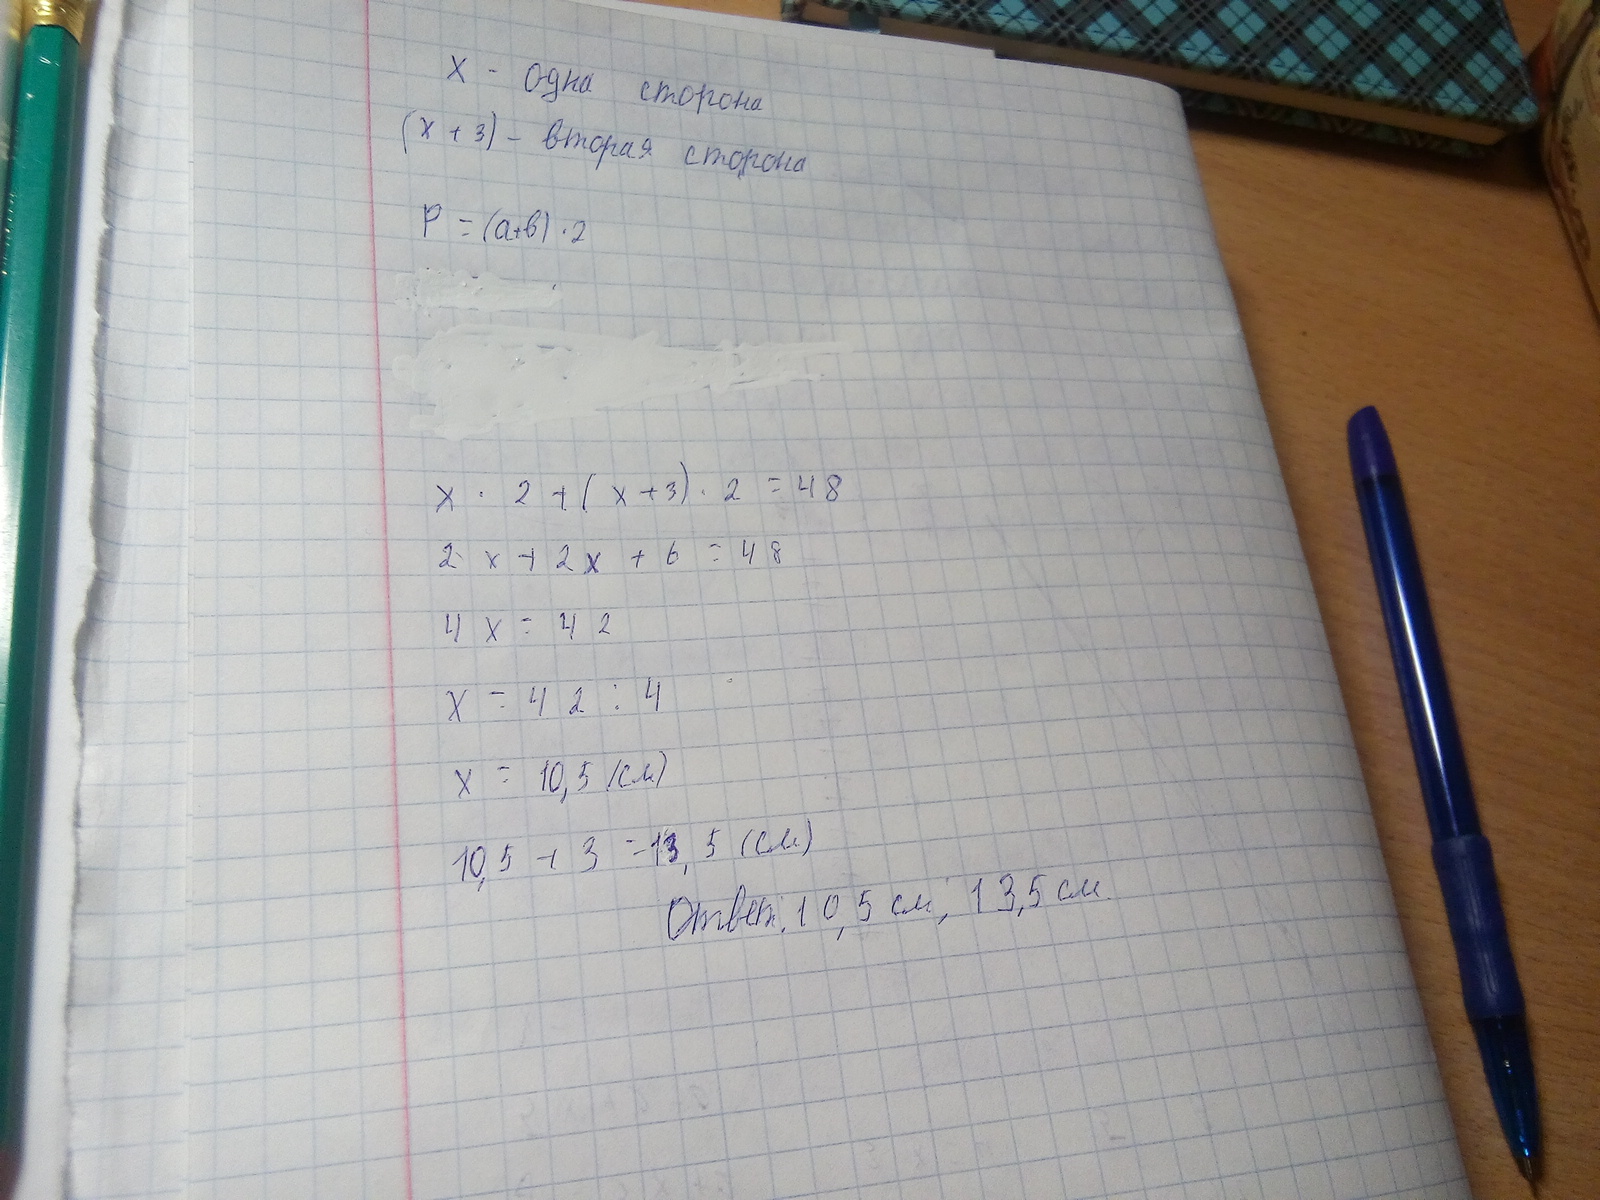 x - одна сторона
(x + 3) - вторая сторона
P = (a+b) · 2
x · 2 + (x + 3) · 2 = 48
2 x + 2x + 6 = 48
4 x = 42
x = 42 : 4
x = 10,5 (см)
10,5 + 3 = 13,5 (см)
Ответ: 10,5 см; 13,5 см.